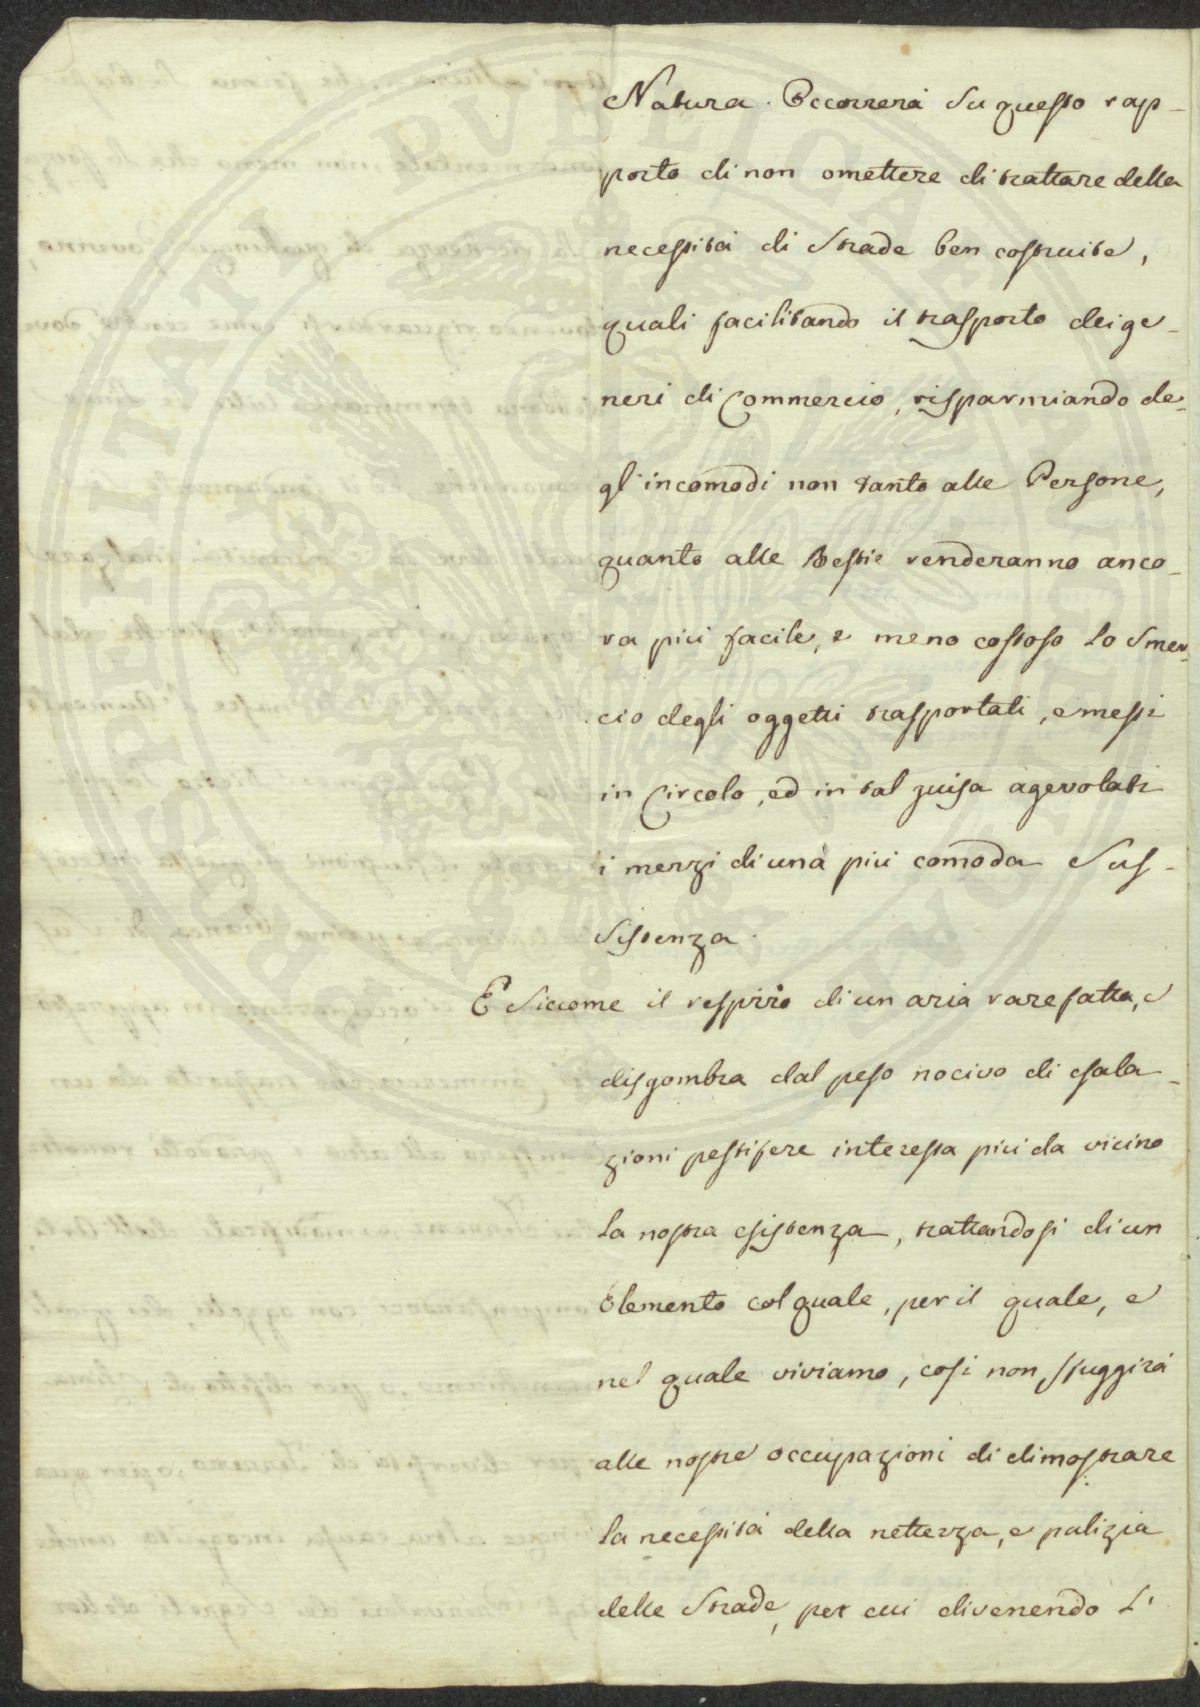 Natura. Occorrerà su questo rap-
porto di non omettere di trattare della
necessità di Strade ben costruite,
quali facilitando il trasporto dei ge-
neri di Commercio, risparmiando de-
gl'incomodi non tanto alle Persone,
quanto alle Bestie renderanno anco-
ra più facile, e meno costoso lo smer-
cio degli oggetti trasportati, e messi
in Circolo, ed in tal guisa agevolati
i mezzi di una più comoda Sus-
sistenza.
E siccome il respiro di un aria rarefatta, e
disgombra dal peso nocivo di esala-
zioni pestifere interessa più da vicino
la nostra esistenza, trattandosi di un
Elemento col quale, per il quale, e
nel quale viviamo, così non sfuggirà
alle nostre occupazioni di dimostrare
la necessità della nettezza, e pulizia
delle Strade, per cui divenendo l'